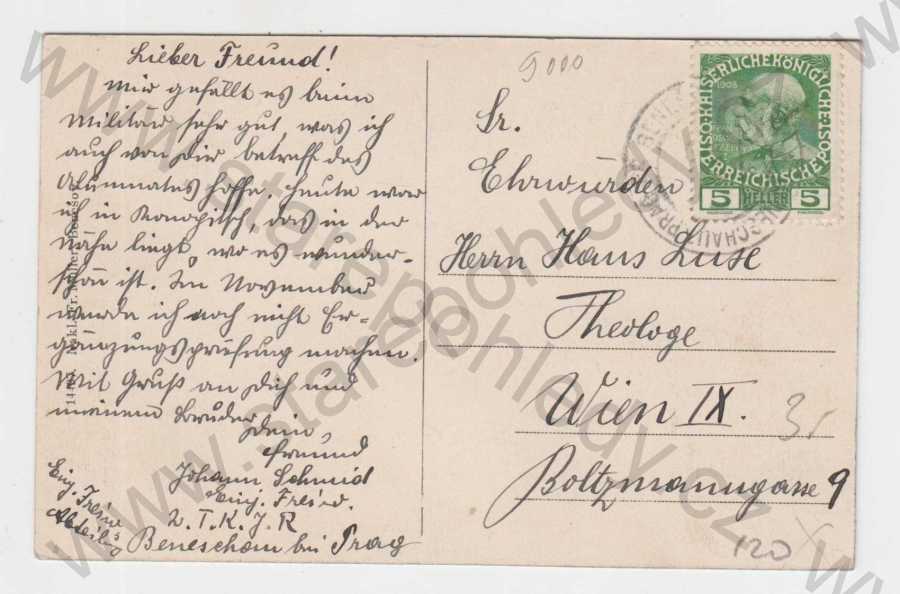 Lieber Freund!
mir gefällt es beim
Militär sehr gut, was ich
auch von Dir betreff des
Alumnates hoffe. Heute war
ich in Konopischt, das in der
Nähe liegt, wo es wunder-
schön ist. Im November
werde ich noch nicht Er-
gänzungsprüfung machen.
Mit Gruß an Dich und
meinem Bruder
Dein
Freund
Johann Schmid
Einj. Freiw.
T.K.J.R
Beneschau bei Prag
Einj. Freiw.
Abteilung
9000
Sr.
Ehrwürden
Herrn Hans Luse
Theologe
Wien IX.
Boltzmanngasse 9
120
KAISERLICHEKÖNIGLICHE
ÖSTERREICHISCHEPOST
1908
5 HELLER 5
www.starepohledy.cz